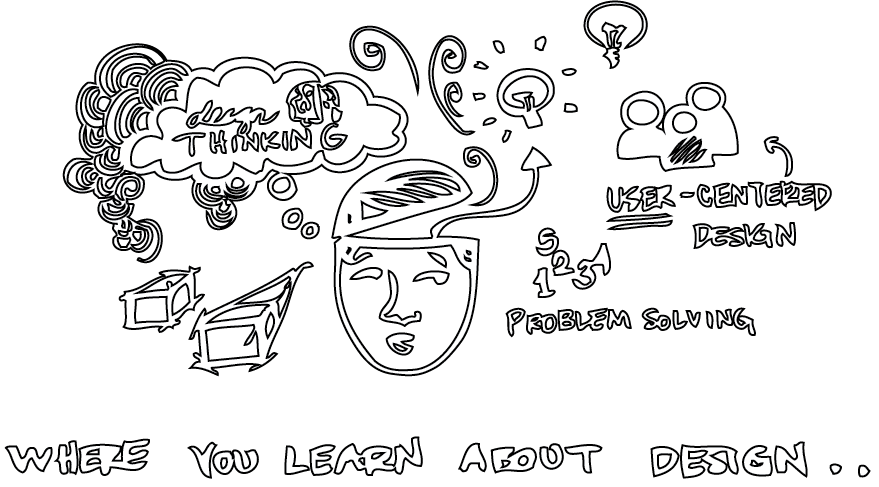 design
THINKING
USER-CENTERED
DESIGN
1 2 3
PROBLEM SOLVING
WHERE YOU LEARN ABOUT DESIGN . .